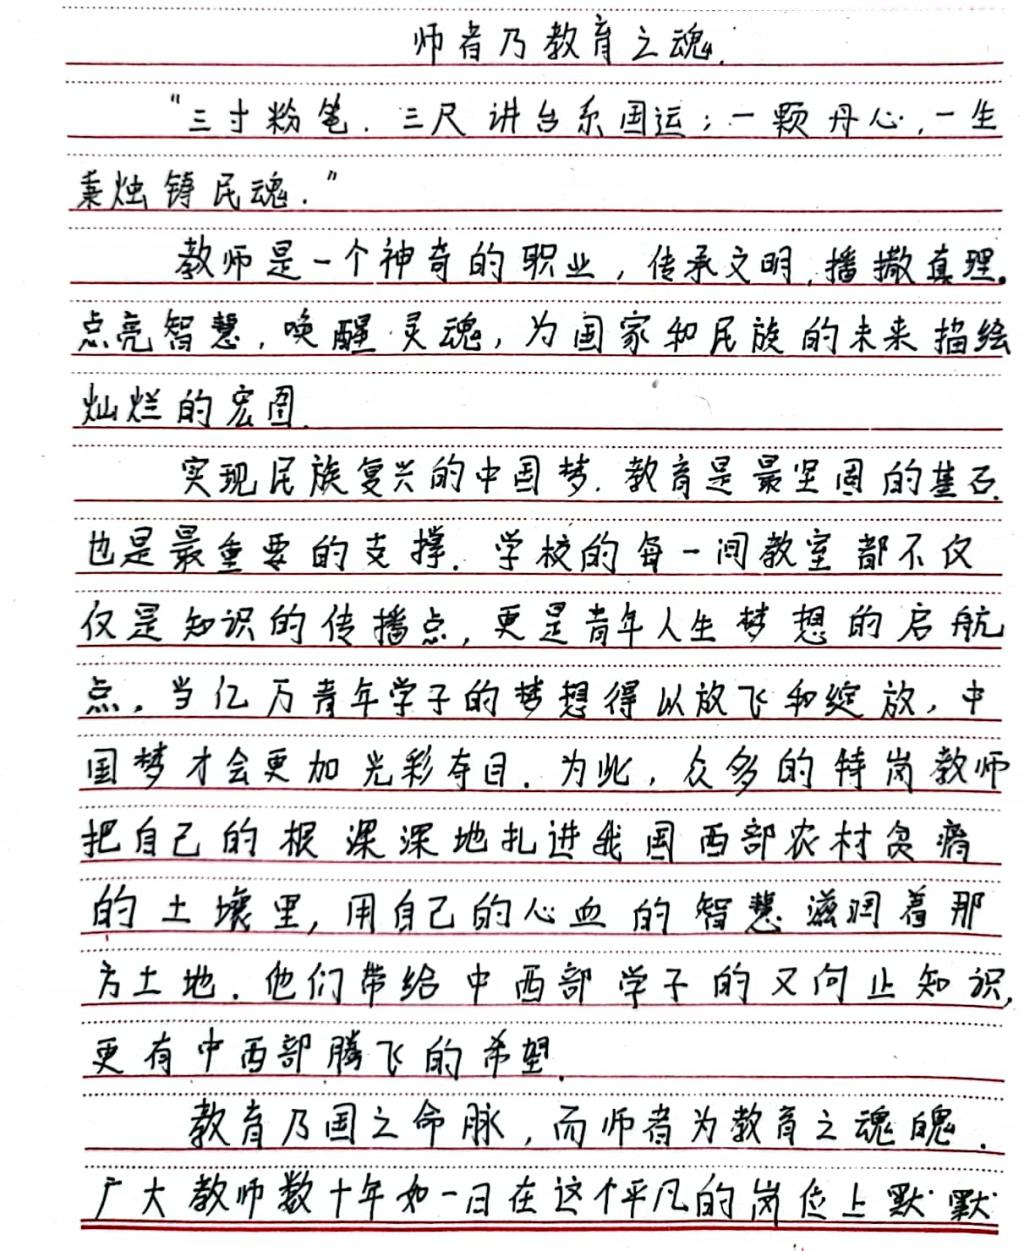 师者乃教育之魂.
"三寸粉笔.三尺讲台系国运;一颗丹心,一生
秉烛铸民魂."
教师是一个神奇的职业,传承文明,播撒真理.
点亮智慧,唤醒灵魂,为国家和民族的未来描绘
灿烂的宏图.
实现民族复兴的中国梦.教育是最坚固的基石.
也是最重要的支撑.学校的每一间教室都不仅
仅是知识的传播点,更是青年人生梦想的启航
点.当亿万青年学子的梦想得以放飞和绽放,中
国梦才会更加光彩夺目.为此,众多的特岗教师
把自己的根深深地扎进我国西部农村贫瘠
的土壤里,用自己的心血的智慧滋润着那
方土地.他们带给中西部学子的又何止知识,
更有中西部腾飞的希望.
教育乃国之命脉,而师者为教育之魂魄.
广大教师数十年如一日在这个平凡的岗位上默默